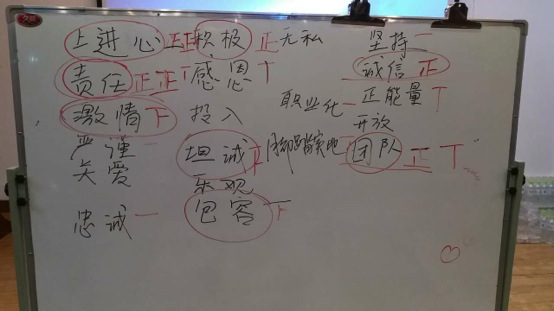 上进心 正正 积极 正 无私 坚持 一
责任 正正 感恩 T 诚信 正
激情 下 投入 职业化 一 正能量 T
开放
严谨 一 坦诚 正 脚踏实地 团队 正 T
关爱
乐观
忠诚 一 包容 下